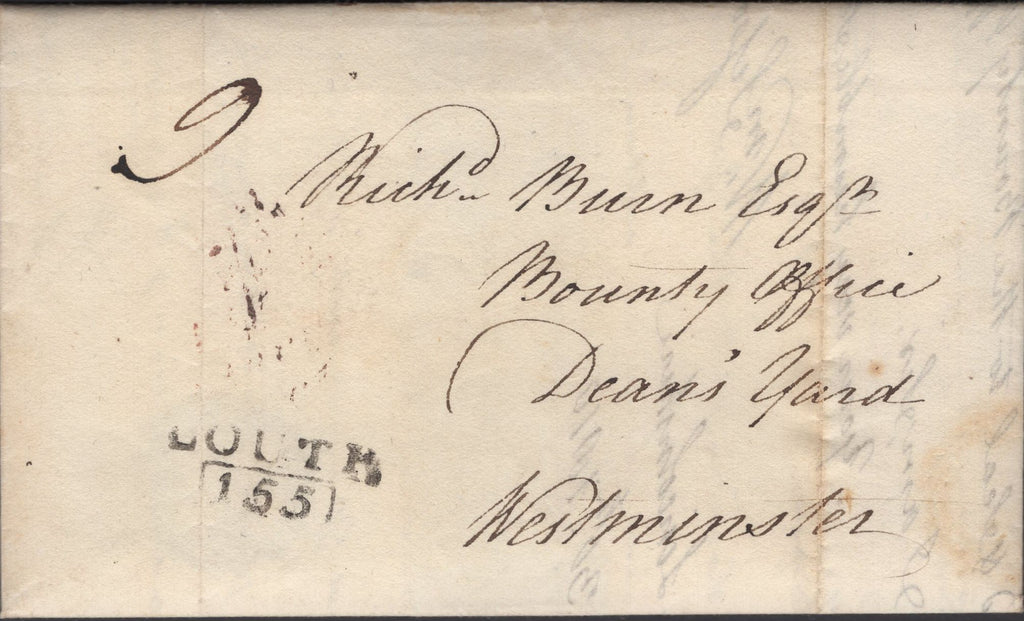 9
Rich.d Burn Esq.r
Bounty Office
Deans' Yard
Westminster
LOUTH
155